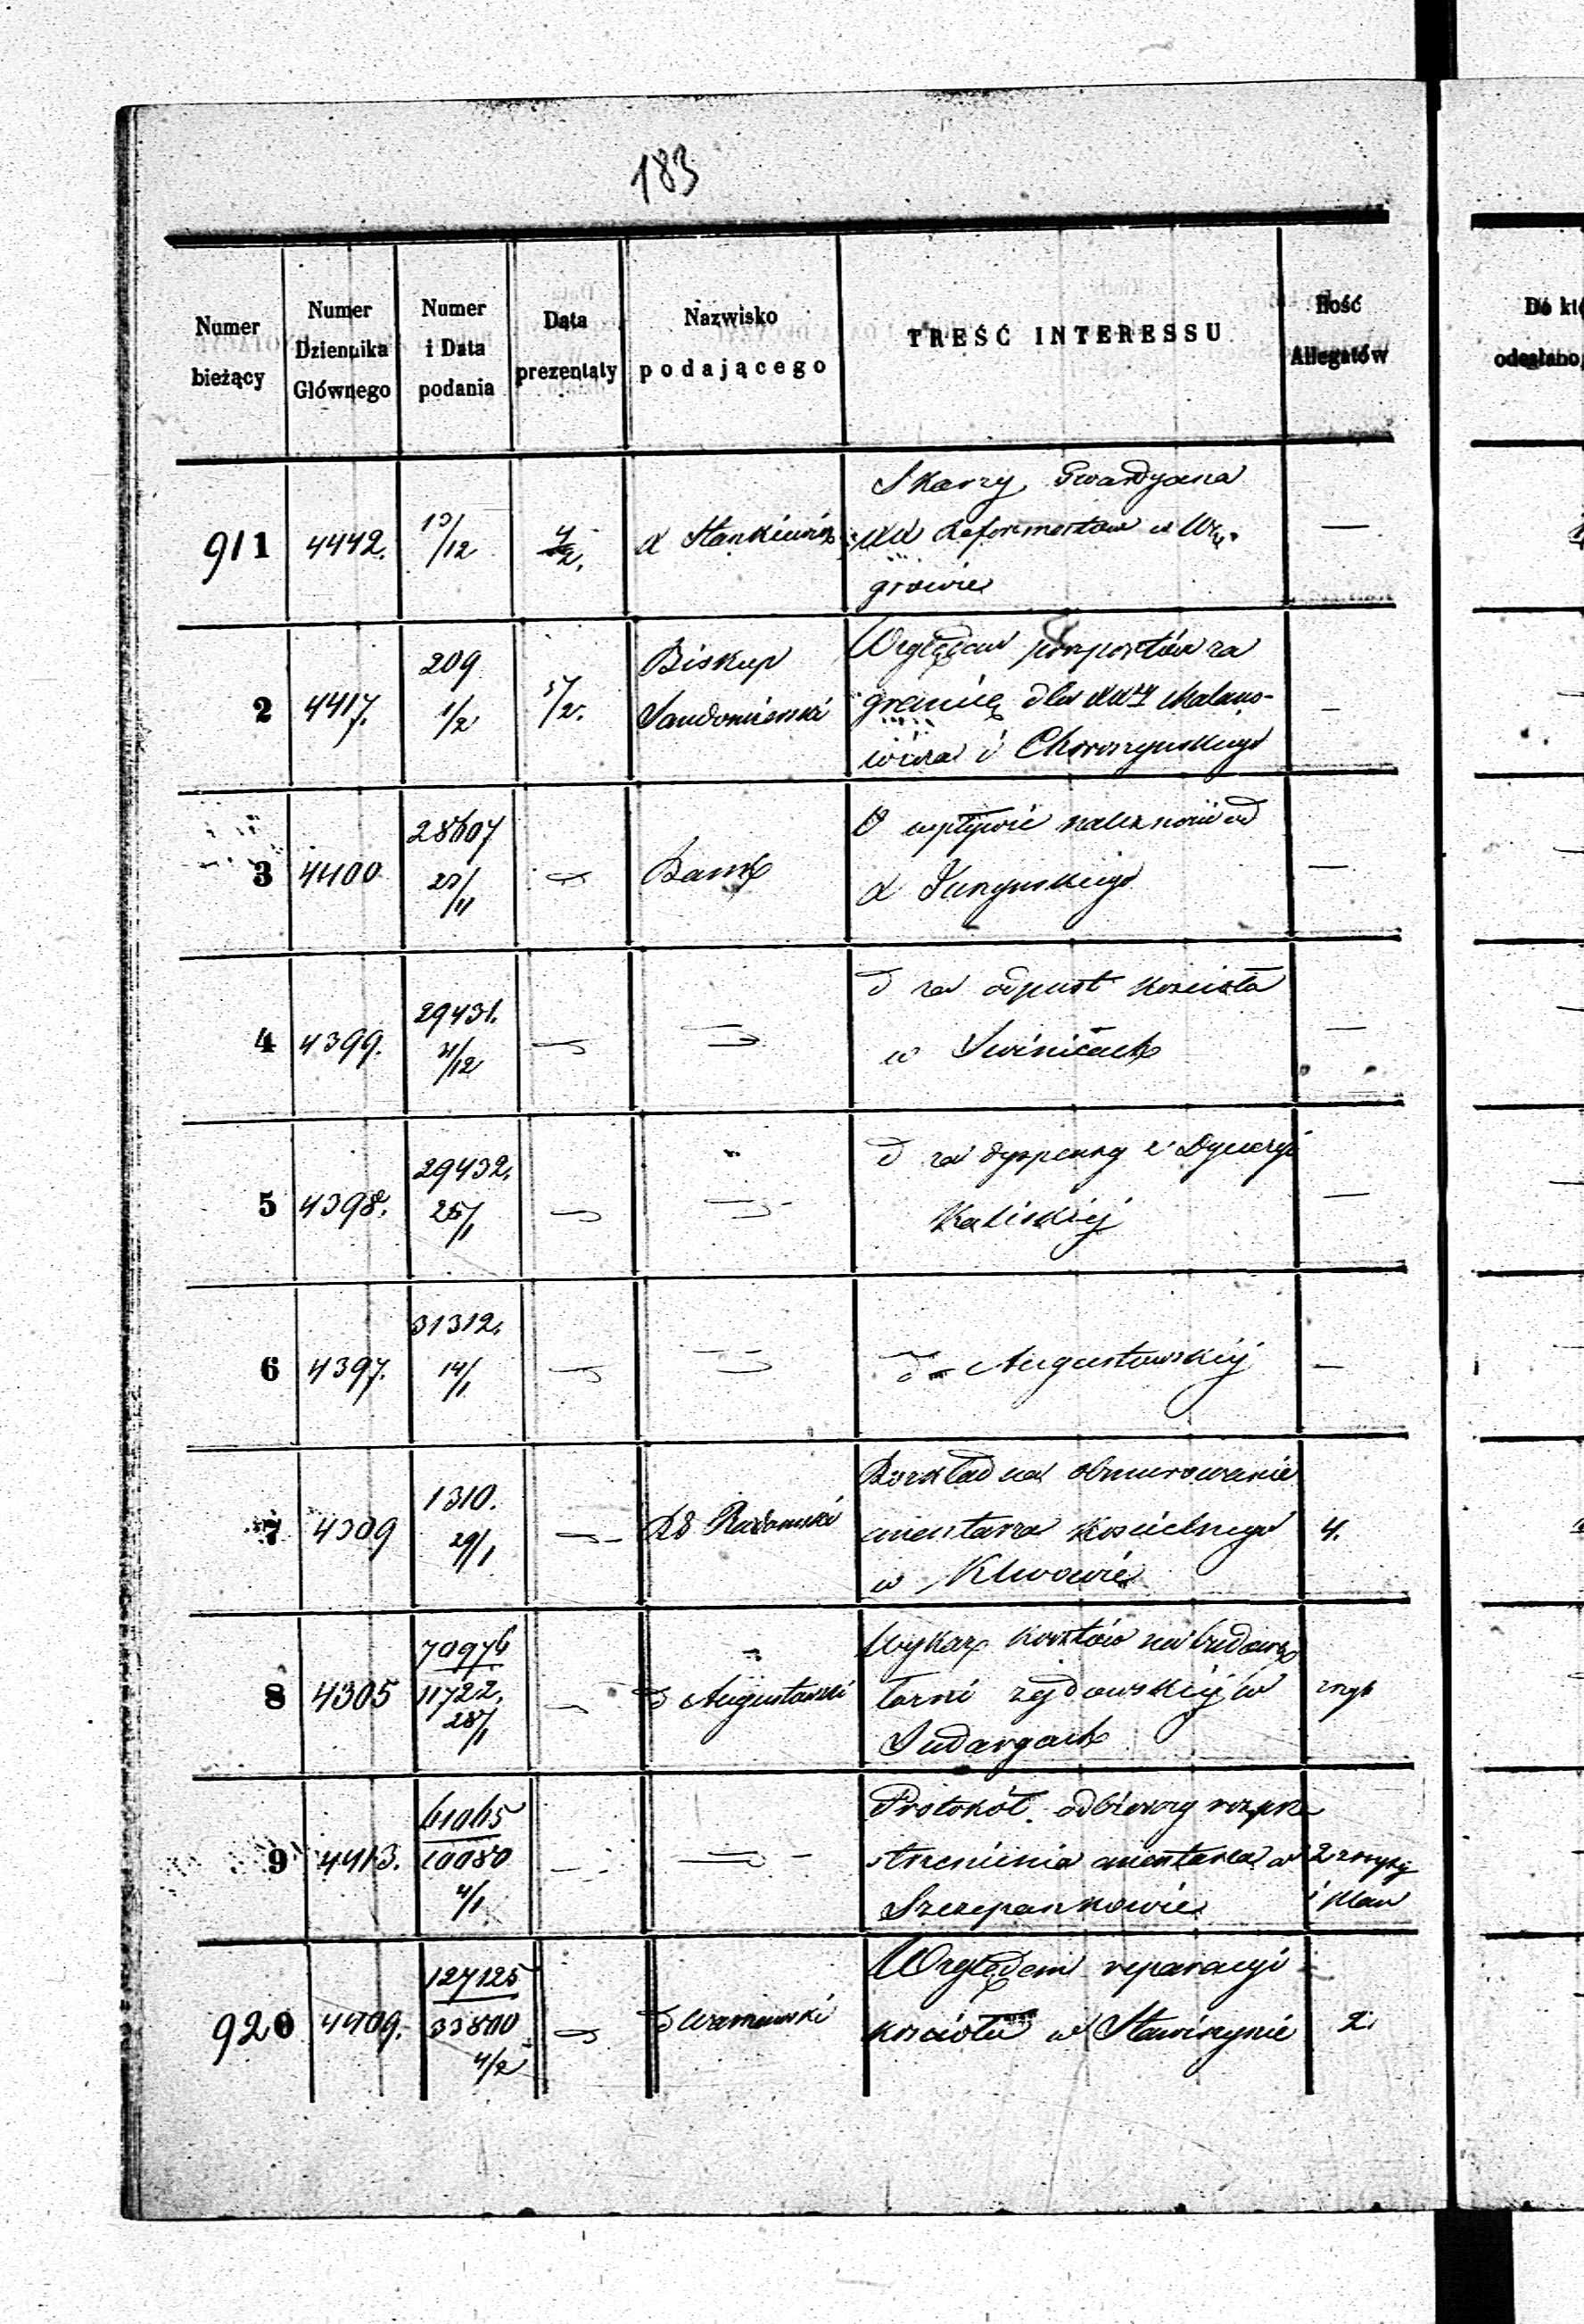 183
Numer bieżący
Numer Dziennika Głównego
Numer i Data podania
Data prezentaty
Nazwisko podającego
TREŚĆ INTERESSU
Ilość Allegatów
911 4442. 13/12 4/2. X Stankiewicz
Skarży Gwardyana
XX Reformatów w Wę-
growie
—
2 4417. 209 1/2 5/2. Biskup Sandomierski
Względem paszportów za
granicę dla XX
i
—
3 4400 28607 23/11 Bank
O wpływie należności od
X
—
4 4399. 29431. 4/12
d za odpust kościoła
w Swinicach
—
5 4398. 29432. 25/1
d za dyspensy z Dyecezyi
Kaliskiej
—
6 4397. 31312. 14/1
d — Augustowskiej
—
7 4309 1310. 29/1 RG Radomski
Rozkład na obmurowanie
cmentarza kościelnego
w Klwowie
4.
8 4305 70976 11722. 28/1 d Augustowski
Wykaz kosztów na budowę
łazni żydowskiej w
Sudargach
9 4413. 61065 10080 4/1
Protokół odbiorczy rozprze
strzenienia cmentarza w
Szczepankowie
2
920 4409. 127125 33800 4/2 d Warszawski
Względem reparacyi
kościoła w Stawiszynie
2.
Do któ
odesłano